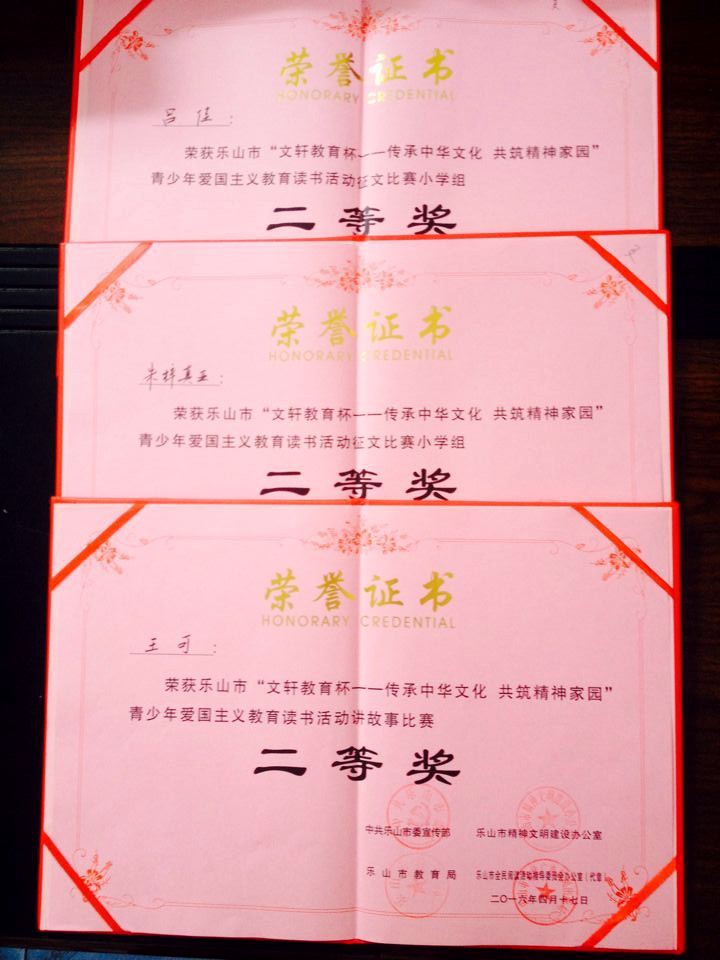 荣誉证书
HONORARY CREDENTIAL
吕佳：
荣获乐山市“文轩教育杯——传承中华文化 共筑精神家园”
青少年爱国主义教育读书活动征文比赛小学组
二等奖
荣誉证书
HONORARY CREDENTIAL
朱梓真王：
荣获乐山市“文轩教育杯——传承中华文化 共筑精神家园”
青少年爱国主义教育读书活动征文比赛小学组
二等奖
荣誉证书
HONORARY CREDENTIAL
王可：
荣获乐山市“文轩教育杯——传承中华文化 共筑精神家园”
青少年爱国主义教育读书活动讲故事比赛
二等奖
中共乐山市委宣传部 乐山市精神文明建设办公室
乐山市教育局 乐山市全民阅读活动指导委员会办公室（代章）
二〇一六年四月十七日